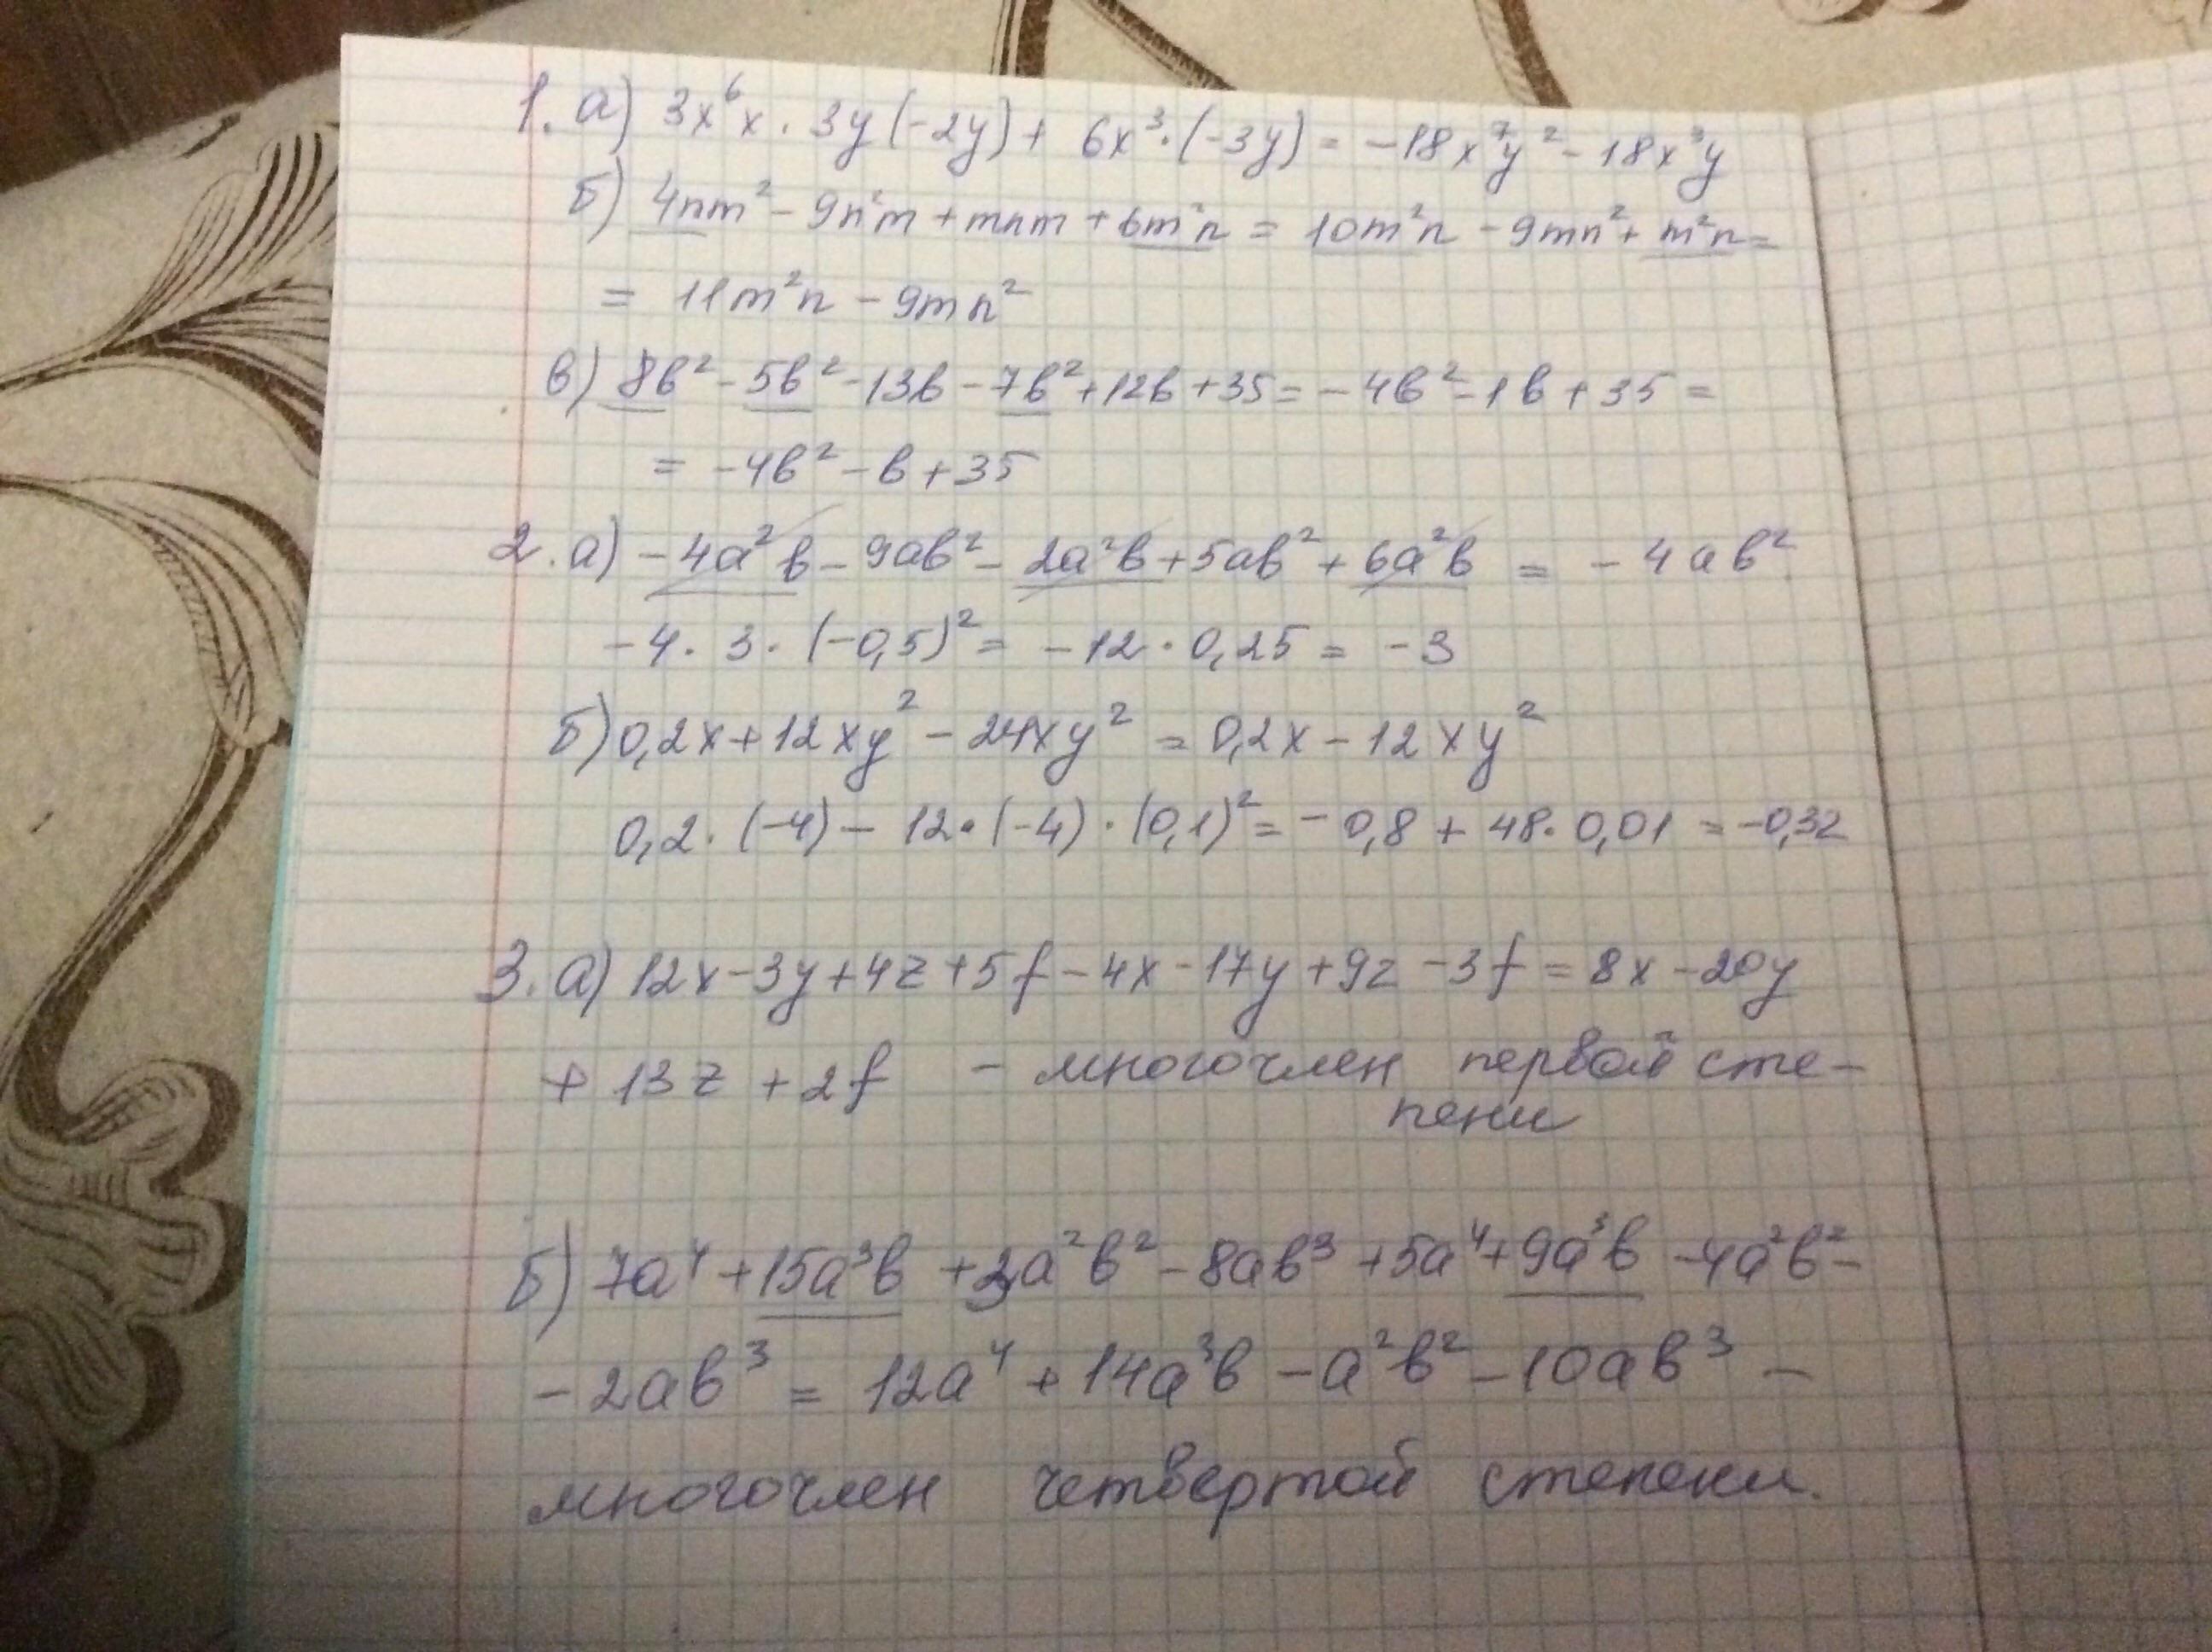 1. а) 3x⁶x · 3y(-2y) + 6x³·(-3y) = -18x⁷y² - 18x³y
б) 4nm² - 9n²m + mnm + 6m²n = 10m²n - 9mn² + m²n =
= 11m²n - 9mn²
в) 8в² - 5в² - 13в - 7в² + 12в + 35 = -4в² - 1в + 35 =
= -4в² - в + 35
2. а) -4a²в - 9aв² - 2a²в + 5aв² + 6a²в = -4aв²
-4 · 3 · (-0,5)² = -12 · 0,25 = -3
б) 0,2x + 12xy² - 24xy² = 0,2x - 12xy²
0,2 · (-4) - 12 · (-4) · (0,1)² = -0,8 + 48 · 0,01 = -0,32
3. а) 12x - 3y + 4z + 5f - 4x - 17y + 9z - 3f = 8x - 20y
+ 13z + 2f - многочлен первой сте-
пени
б) 7a⁴ + 15a³в + 3a²в² - 8aв³ + 5a⁴ + 9a³в - 4a²в² -
- 2aв³ = 12a⁴ + 14a³в - a²в² - 10aв³ -
многочлен четвертой степени.